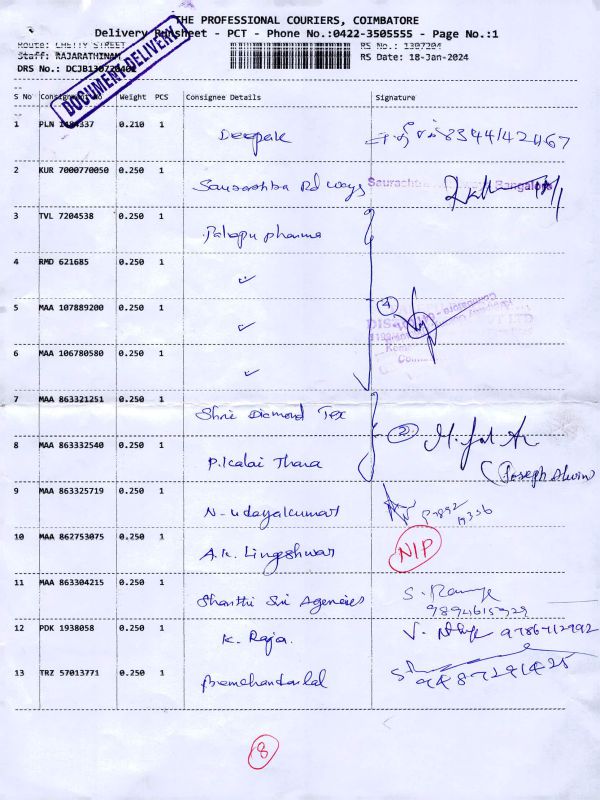 THE PROFESSIONAL COURIERS, COIMBATORE
Delivery Runsheet - PCT - Phone No.:0422-3505555 - Page No.:1
Route: CHETTY STREET RS No.: 1307204
Staff: RAJARATHINAM RS Date: 18-Jan-2024
DRS No.: DCJB130720401
DOCUMENT DELIVERY
S No Consignment No Weight PCS Consignee Details Signature
1 PLN 337 0.210 1 Deepak 8344142467
2 KUR 7000770050 0.250 1 Saurashtra Rd ways Saurachtra Bangalore
3 TVL 7204538 0.250 1 pharma
4 RMD 621685 0.250 1 ✓
5 MAA 107889200 0.250 1 ✓ 4
6 MAA 106780580 0.250 1 ✓
7 MAA 863321251 0.250 1 Shri Diamond Tex
8 MAA 863332540 0.250 1 P. Kalai Thara 2
(Joseph Alwin)
9 MAA 863325719 0.250 1 N. Udayakumar
10 MAA 862753075 0.250 1 A.K. Lingeshwar N/P
11 MAA 863304215 0.250 1 Shanthi Sri Agencies S.
12 PDK 1938058 0.250 1 K. Raja. V. 9786712992
13 TRZ 57013771 0.250 1 Premchandarlal 9487291425
8